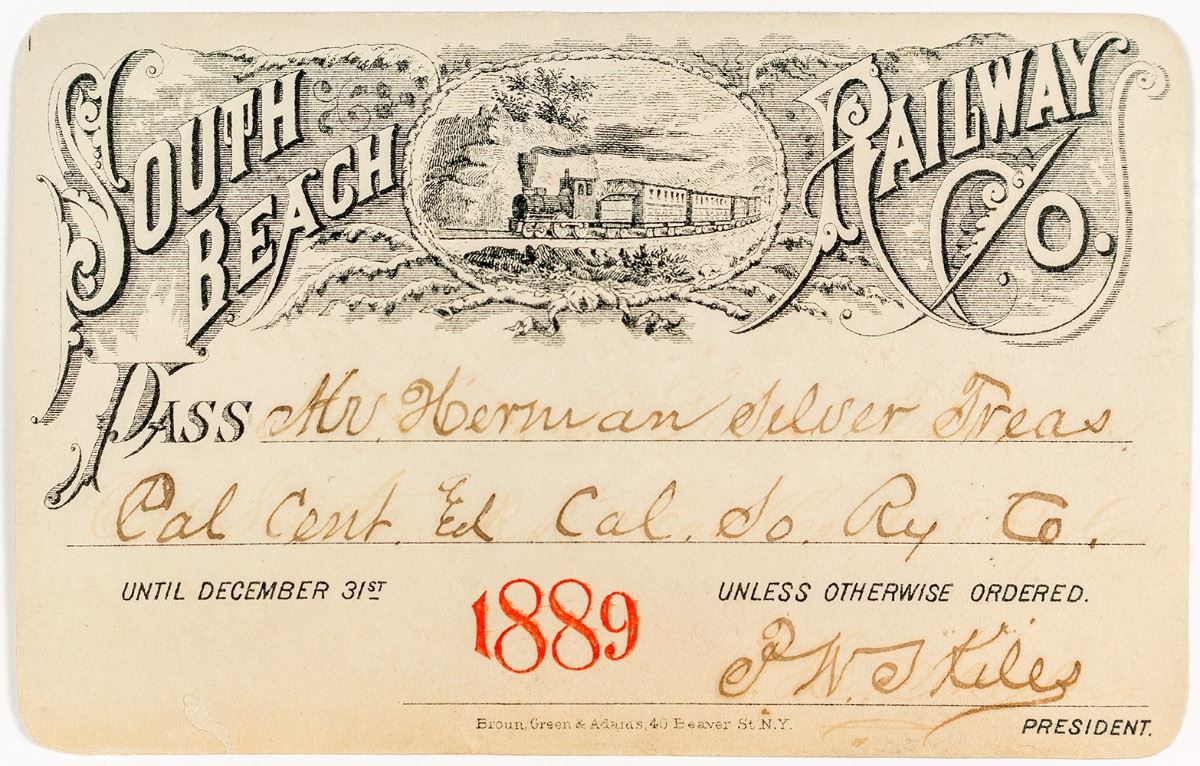 SOUTH BEACH RAILWAY CO.
PASS Mr. Herman Silver Treas
Cal Cent. Ed Cal. So. Ry Co.
UNTIL DECEMBER 31ST 1889 UNLESS OTHERWISE ORDERED.
Kiles
Broun, Green & Adams, 40 Beaver St. N.Y.
PRESIDENT.